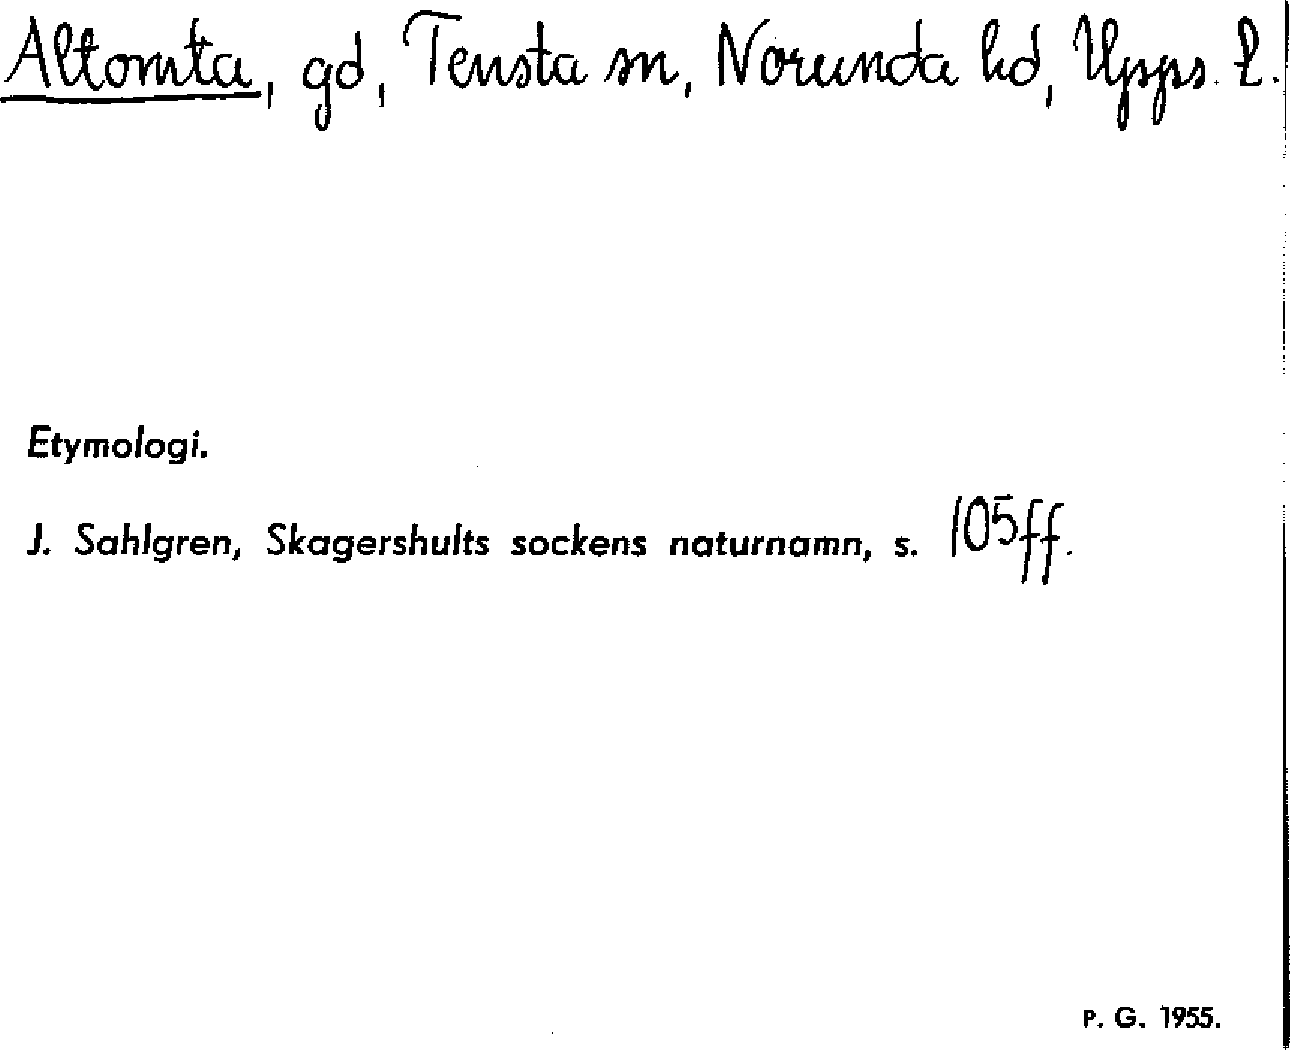 Altomta, gd, Tensta sn, Norunda hd, Upps. l.
Etymologi.
J. Sahlgren, Skagershults sockens naturnamn, s. 105 ff.
P. G. 1955.